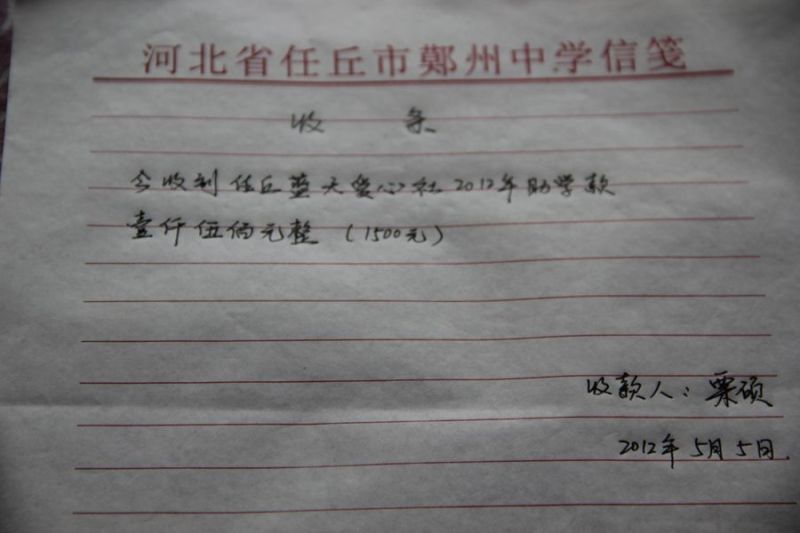 河北省任丘市鄚州中学信笺
收 条
今收到任丘蓝天爱心社2012年助学款
壹仟伍佰元整（1500元）
收款人：栗硕
2012年5月5日.